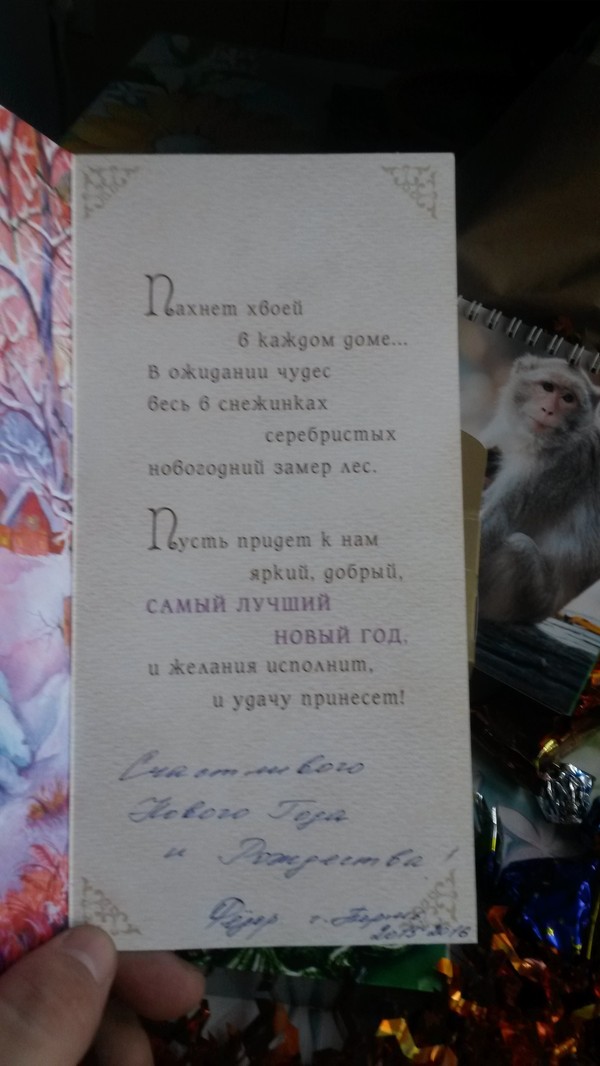 Пахнет хвоей
в каждом доме...
В ожидании чудес
весь в снежинках
серебристых
новогодний замер лес.
Пусть придет к нам
яркий, добрый,
САМЫЙ ЛУЧШИЙ
НОВЫЙ ГОД,
и желания исполнит,
и удачу принесет!
Счастливого
Нового Года
и Рождества!
Фёдор г.
2015-2016